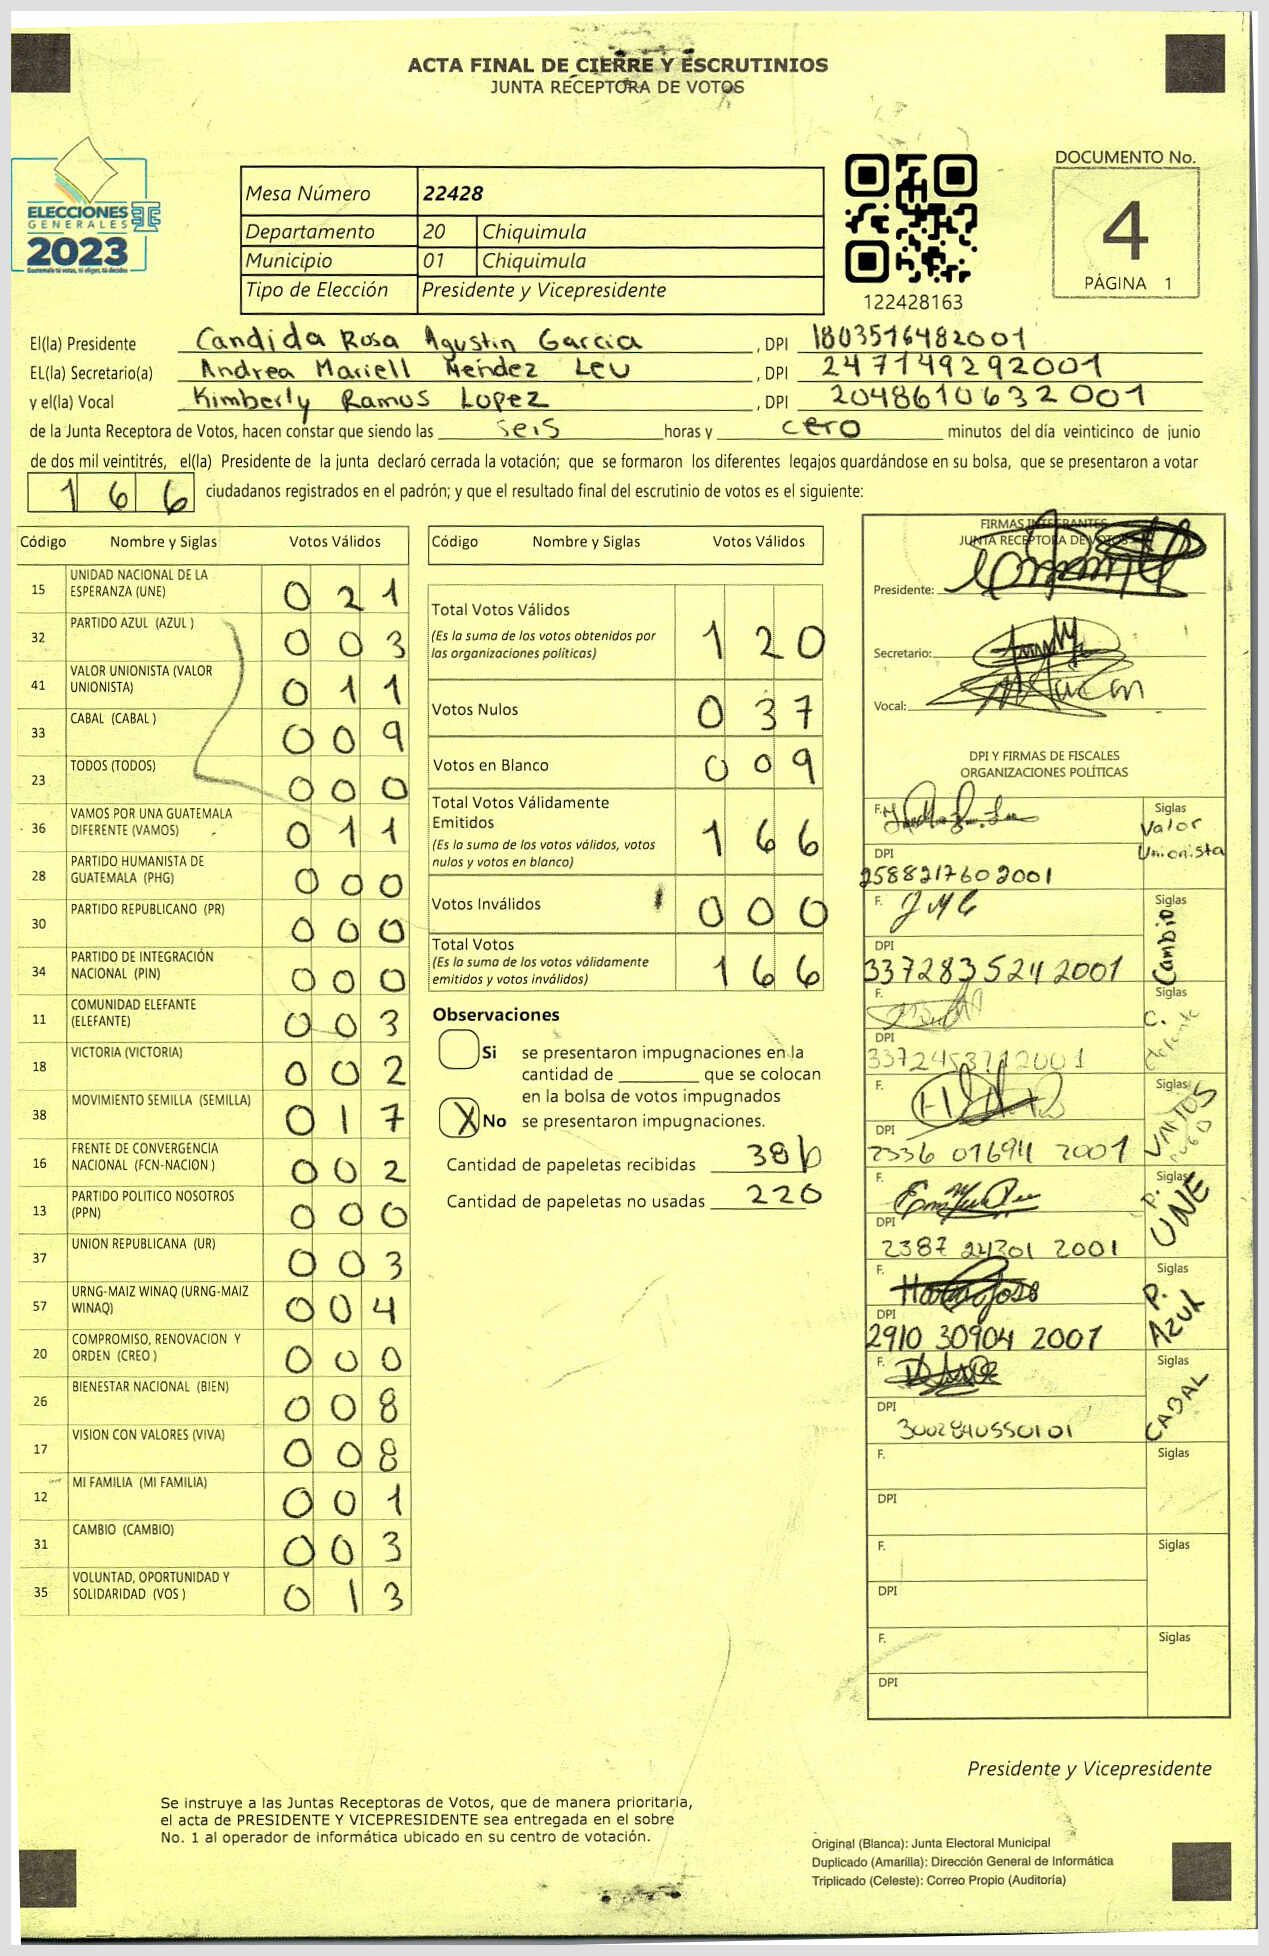 ACTA FINAL DE CIERRE Y ESCRUTINIOS
JUNTA RECEPTORA DE VOTOS
ELECCIONES
GENERALES
2023
Guatemala tú votas, tú eliges, tú decides
Mesa Número 22428
Departamento 20 Chiquimula
Municipio 01 Chiquimula
Tipo de Elección Presidente y Vicepresidente
122428163
DOCUMENTO No.
4
PÁGINA 1
El(la) Presidente Candida Rosa Agustin Garcia, DPI 1803516482001
EL(la) Secretario(a) Andrea Mariell Méndez Leu, DPI 247149292001
y el(la) Vocal Kimberly Ramos Lopez, DPI 2048610632001
de la Junta Receptora de Votos, hacen constar que siendo las seis horas y cero minutos del día veinticinco de junio
de dos mil veintitrés, el(la) Presidente de la junta declaró cerrada la votación; que se formaron los diferentes legajos guardándose en su bolsa, que se presentaron a votar
166 ciudadanos registrados en el padrón; y que el resultado final del escrutinio de votos es el siguiente:
Código Nombre y Siglas Votos Válidos
15 UNIDAD NACIONAL DE LA ESPERANZA (UNE) 021
32 PARTIDO AZUL (AZUL ) 003
41 VALOR UNIONISTA (VALOR UNIONISTA) 011
33 CABAL (CABAL ) 009
23 TODOS (TODOS) 000
36 VAMOS POR UNA GUATEMALA DIFERENTE (VAMOS) 011
28 PARTIDO HUMANISTA DE GUATEMALA (PHG) 000
30 PARTIDO REPUBLICANO (PR) 000
34 PARTIDO DE INTEGRACIÓN NACIONAL (PIN) 000
11 COMUNIDAD ELEFANTE (ELEFANTE) 003
18 VICTORIA (VICTORIA) 002
38 MOVIMIENTO SEMILLA (SEMILLA) 017
16 FRENTE DE CONVERGENCIA NACIONAL (FCN-NACION ) 002
13 PARTIDO POLITICO NOSOTROS (PPN) 000
37 UNION REPUBLICANA (UR) 003
57 URNG-MAIZ WINAQ (URNG-MAIZ WINAQ) 004
20 COMPROMISO, RENOVACION Y ORDEN (CREO ) 000
26 BIENESTAR NACIONAL (BIEN) 008
17 VISION CON VALORES (VIVA) 008
12 MI FAMILIA (MI FAMILIA) 001
31 CAMBIO (CAMBIO) 003
35 VOLUNTAD, OPORTUNIDAD Y SOLIDARIDAD (VOS ) 013
Código Nombre y Siglas Votos Válidos
Total Votos Válidos 120
(Es la suma de los votos obtenidos por
las organizaciones políticas)
Votos Nulos 037
Votos en Blanco 009
Total Votos Válidamente
Emitidos 166
(Es la suma de los votos válidos, votos
nulos y votos en blanco)
Votos Inválidos 000
Total Votos 166
(Es la suma de los votos válidamente
emitidos y votos inválidos)
Observaciones
Si se presentaron impugnaciones en la
cantidad de ________ que se colocan
en la bolsa de votos impugnados
X No se presentaron impugnaciones.
Cantidad de papeletas recibidas 386
Cantidad de papeletas no usadas 220
FIRMAS INTEGRANTES
JUNTA RECEPTORA DE VOTOS
Presidente:
Secretario:
Vocal:
DPI Y FIRMAS DE FISCALES
ORGANIZACIONES POLÍTICAS
F. Siglas Valor Unionista
DPI 2588217602001
F. Siglas Cambio
DPI 3372835242001
F. Siglas C.
DPI
F. Siglas VAMOS
DPI 2336 01694 2001
F. Siglas P. UNE
DPI 2387 24301 2001
F. Siglas P. AZUL
DPI 2910 30904 2001
F. Siglas CABAL
DPI 3002840550101
F. Siglas
DPI
F. Siglas
DPI
F. Siglas
DPI
Presidente y Vicepresidente
Se instruye a las Juntas Receptoras de Votos, que de manera prioritaria,
el acta de PRESIDENTE Y VICEPRESIDENTE sea entregada en el sobre
No. 1 al operador de informática ubicado en su centro de votación.
Original (Blanca): Junta Electoral Municipal
Duplicado (Amarilla): Dirección General de Informática
Triplicado (Celeste): Correo Propio (Auditoría)